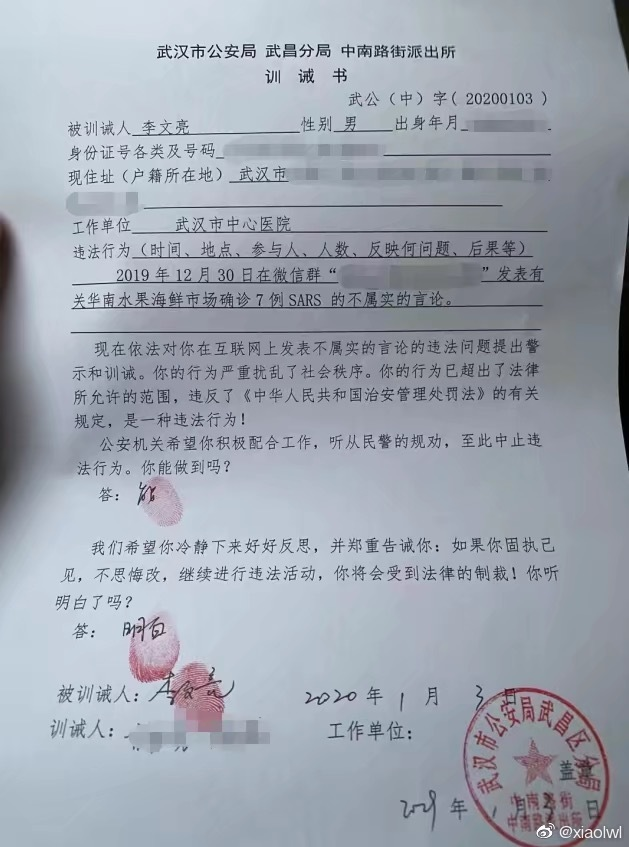 武汉市公安局 武昌分局 中南路街派出所
训 诫 书
武公（中）字（20200103）
被训诫人 李文亮 性别 男 出身年月
身份证号各类及号码
现住址（户籍所在地） 武汉市
工作单位 武汉市中心医院
违法行为（时间、地点、参与人、人数、反映何问题、后果等）
2019年12月30日在微信群“ ”发表有
关华南水果海鲜市场确诊7例SARS 的不属实的言论。
现在依法对你在互联网上发表不属实的言论的违法问题提出警
示和训诫。你的行为严重扰乱了社会秩序。你的行为已超出了法律
所允许的范围，违反了《中华人民共和国治安管理处罚法》的有关
规定，是一种违法行为！
公安机关希望你积极配合工作，听从民警的规劝，至此中止违
法行为。你能做到吗？
答：能
我们希望你冷静下来好好反思，并郑重告诫你：如果你固执己
见，不思悔改，继续进行违法活动，你将会受到法律的制裁！你听
明白了吗？
答：明白
被训诫人：李文亮 2020年1月3日
训诫人： 工作单位：
武汉市公安局武昌区分局
盖章
中南路街
中南路派出所
年1月3日
@xiaolwl